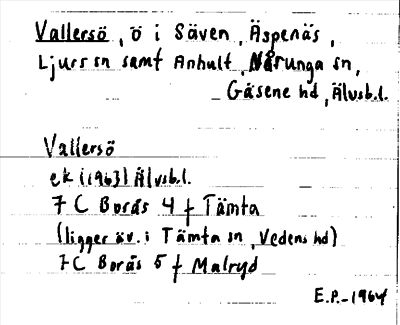 Vallersö, ö i Säven, Äspenäs,
Ljurs sn samt Anhult, Nårunga sn,
Gäsene hd, Älvsb.l.
Vallersö
ek (1963) Älvsb.l.
7 C Borås 4 f Tämta
(ligger äv. i Tämta sn, Vedens hd)
7C Borås 5 f Malryd
E.P.-1964